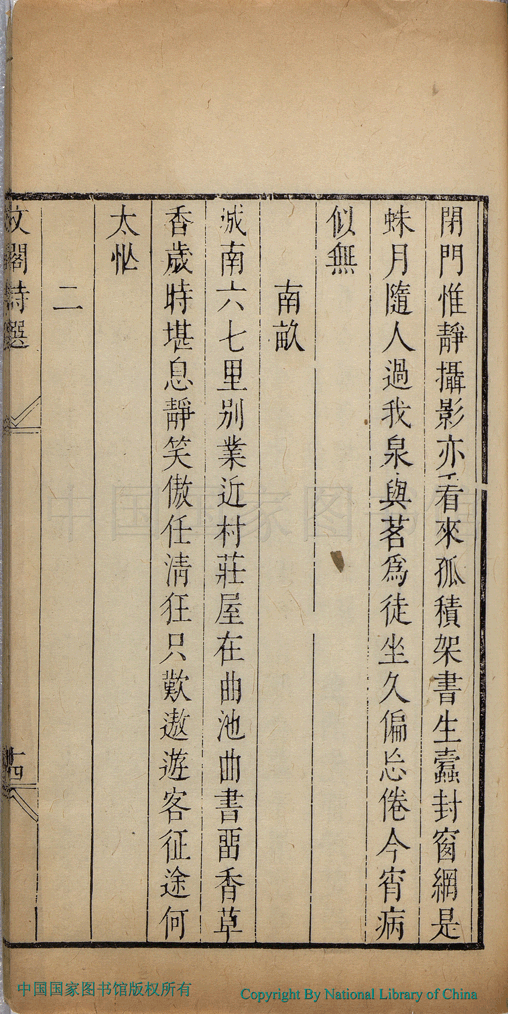 閉門惟靜攝影亦看來孤積架書生蠹封窗網是
蛛月隨人過我泉與茗爲徒坐久偏忘倦今宵病
似無
南畝
城南六七里別業近村莊屋在曲池曲書畱香草
香歲時堪息靜笑傲任清狂只歎遨遊客征途何
太忙
二
文閣詩選
十四
中国国家图书馆
中国国家图书馆版权所有
Copyright By National Library of China